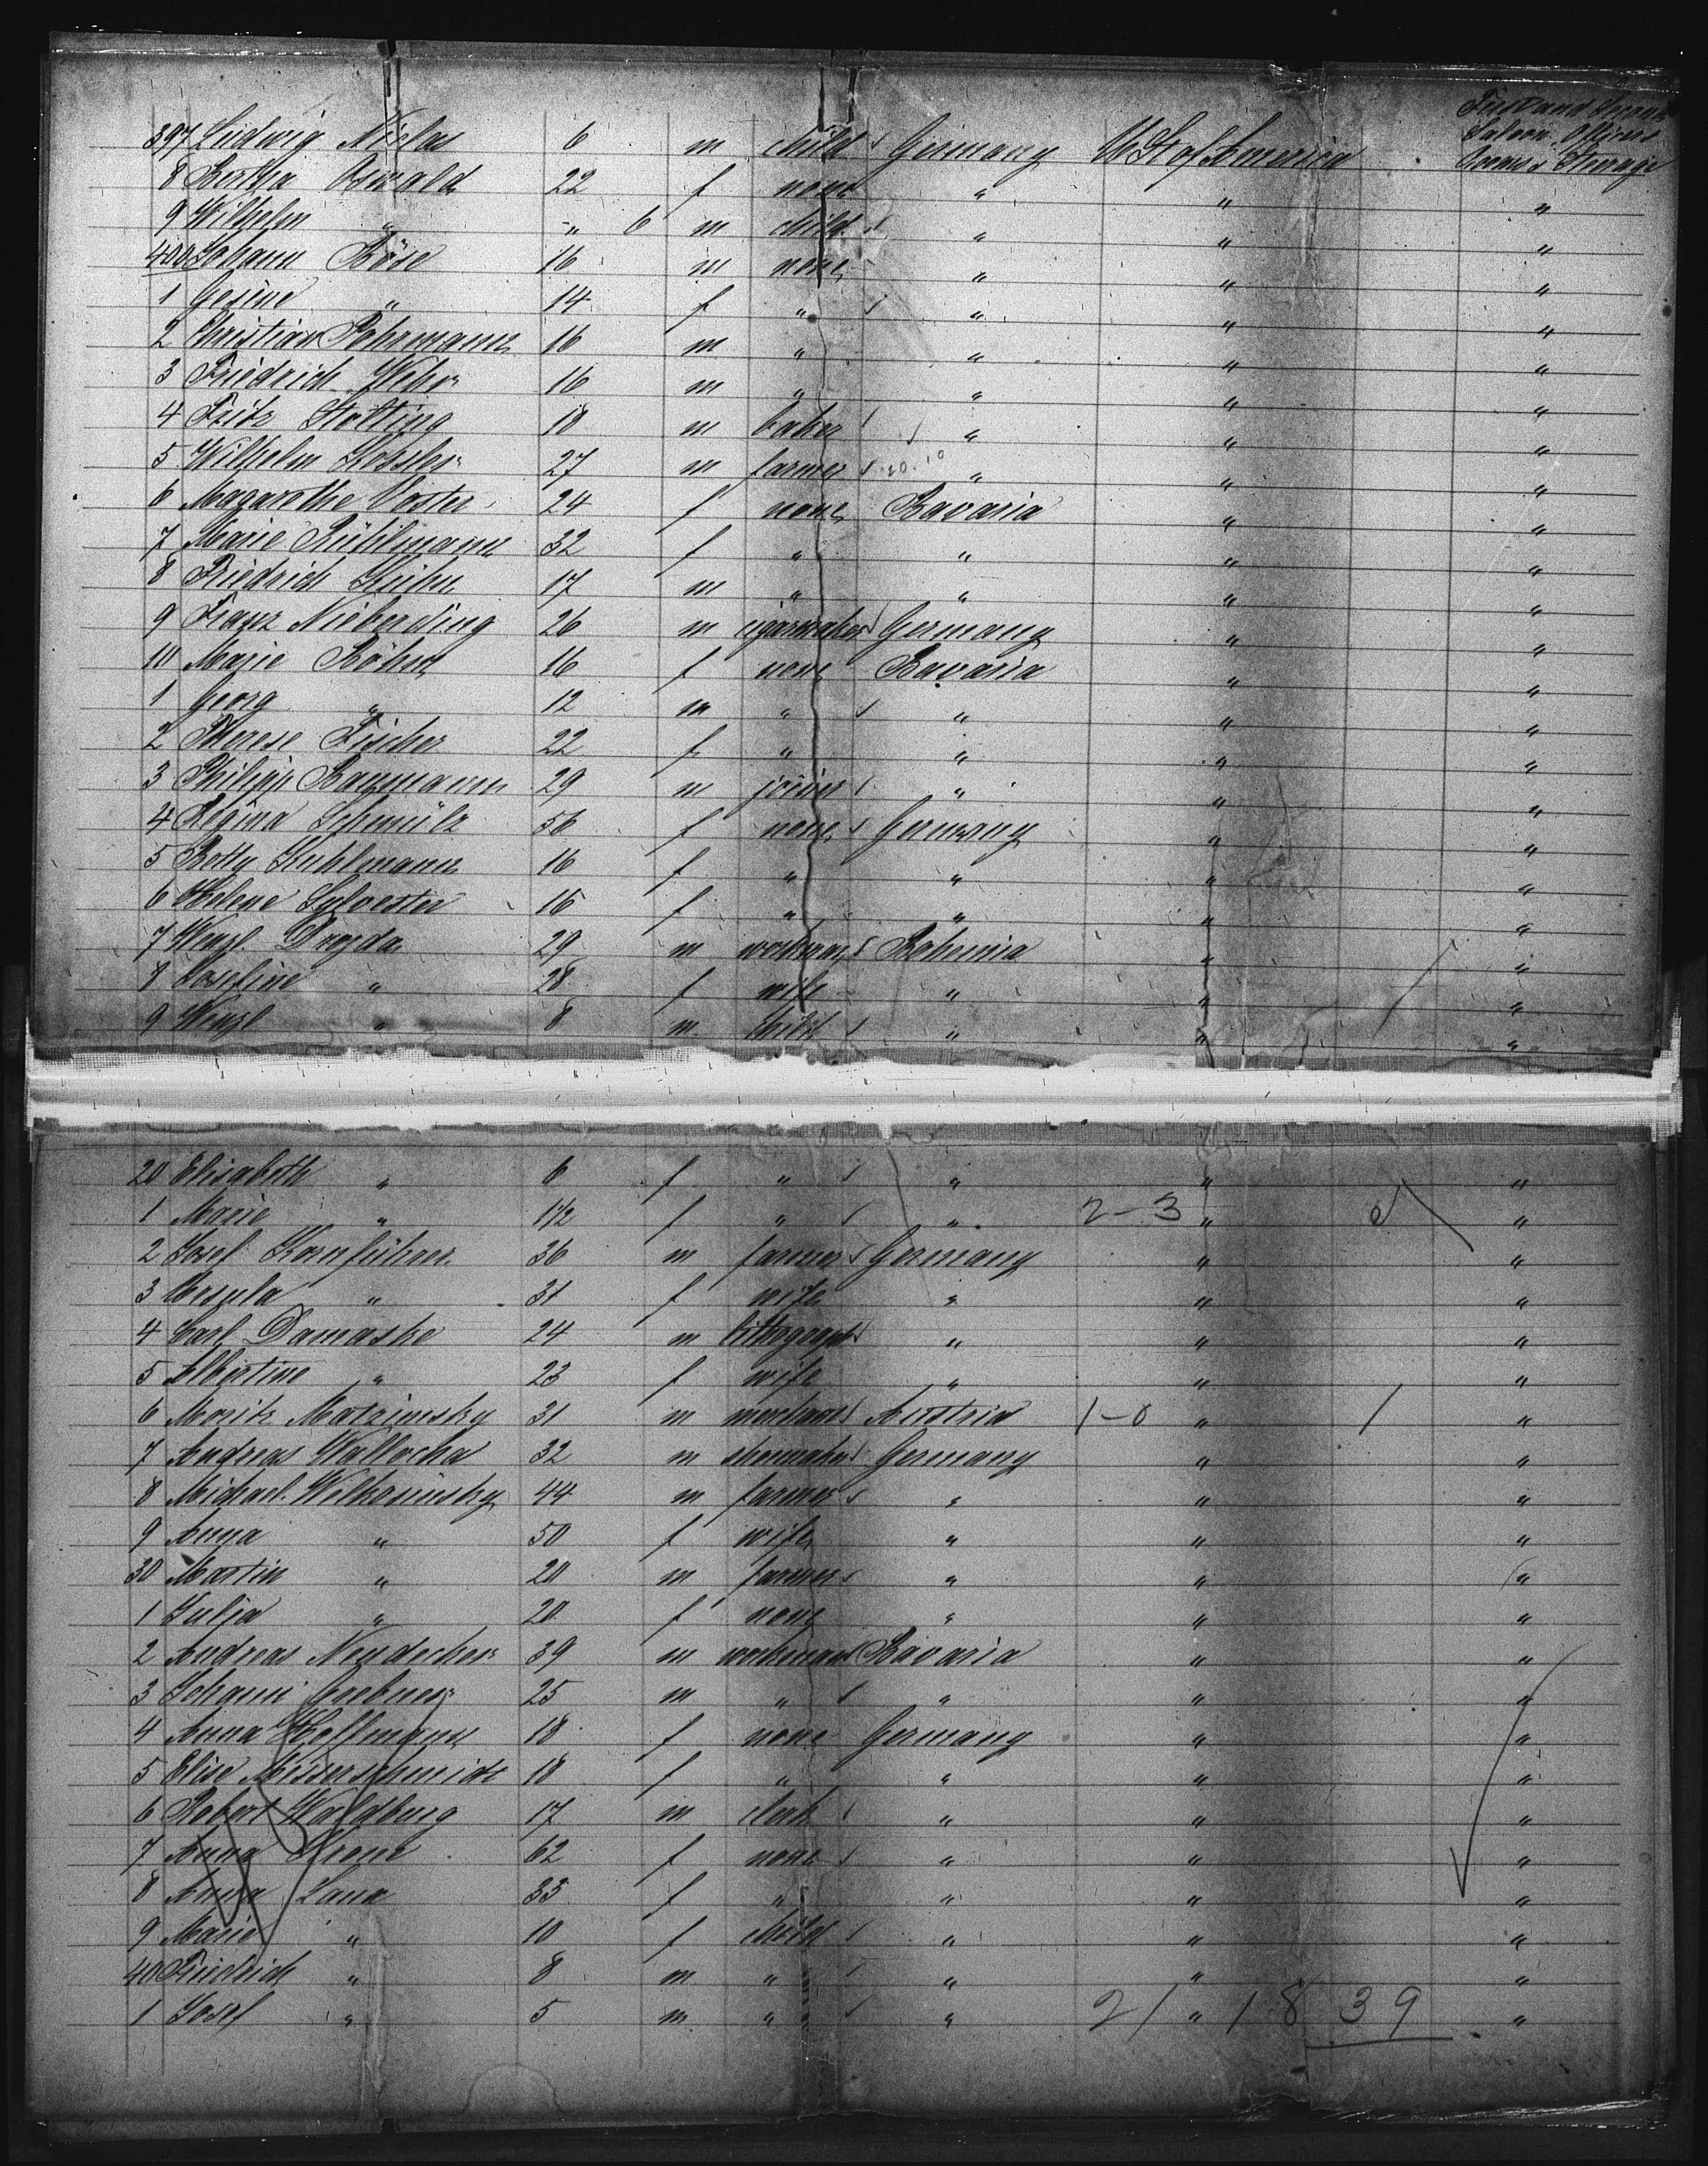 First and Second
Saloon Officers
Rooms & Steerage
397 Ludwig Niclas 6 m child Germany U St of America
8 Bertha Oswald 22 f none " " "
9 Wilhelm " -" 6 m child " " "
400 Johann Böse 16 m none " " "
1 Gesine " 14 f " " " "
2 Christian Pohrmann 16 m " " " "
3 Friedrich Weber 16 m " " " "
4 Fritz Stölting 18 m baker " " "
5 Wilhelm Kessler 27 m farmer " " "
6 Magarethe Voster 24 f none Bavaria " "
7 Marie Rühlmann 32 f " " " "
8 Friedrich Kuhn 17 m " " " "
9 Franz Nieberding 26 m cigarmaker Germany " "
10 Marie Böhm 16 f none Bavaria " "
1 Georg " 12 m " " " "
2 Therese Fischer 22 f " " " "
3 Philipp Baumann 29 m joiner " " "
4 Regina Schmülz 56 f none Germany " "
5 Betty Kuhlmann 16 f " " " "
6 Helene Sylvester 16 f " " " "
7 Wenzl Drozda 29 m workman Bohemia " "
8 Josefine " 28 f wife " " "
9 Wenzl " 8 m child " " "
20 Elisabeth " 6 f " " " "
1 Marie " 1 1/2 f " " 2-3 " "
2 Josef Kornführer 36 m farmer Germany " "
3 Ursula " 31 f wife " " "
4 Carl Damaske 24 m " " "
5 Albertine " 23 f wife " " "
6 Moritz Marzinsky 31 m merchant Austria 1-0 " 1 "
7 Andreas Wallocha 32 m shoemaker Germany " "
8 Michael Welkosinsky 44 m farmer " " "
9 Anna " 50 f wife " " "
30 Martin " 20 m farmer " " "
1 Julja " 20 f none " " "
2 Andreas Neudecker 39 m workman Bavaria " "
3 Johann Grebner 25 m " " " "
4 Anna Hoffmann 18 f none Germany " "
5 Elise Messerschmidt 18 f " " " "
6 Robert Waldburg 17 m clerk " " "
7 Anna Krone 62 f none " " "
8 Anna Lana 33 f " " " "
9 Marie " 10 f child " " "
40 Friedrich " 8 m " " " "
1 Josef " 5 m " " 21 " 18 39 "